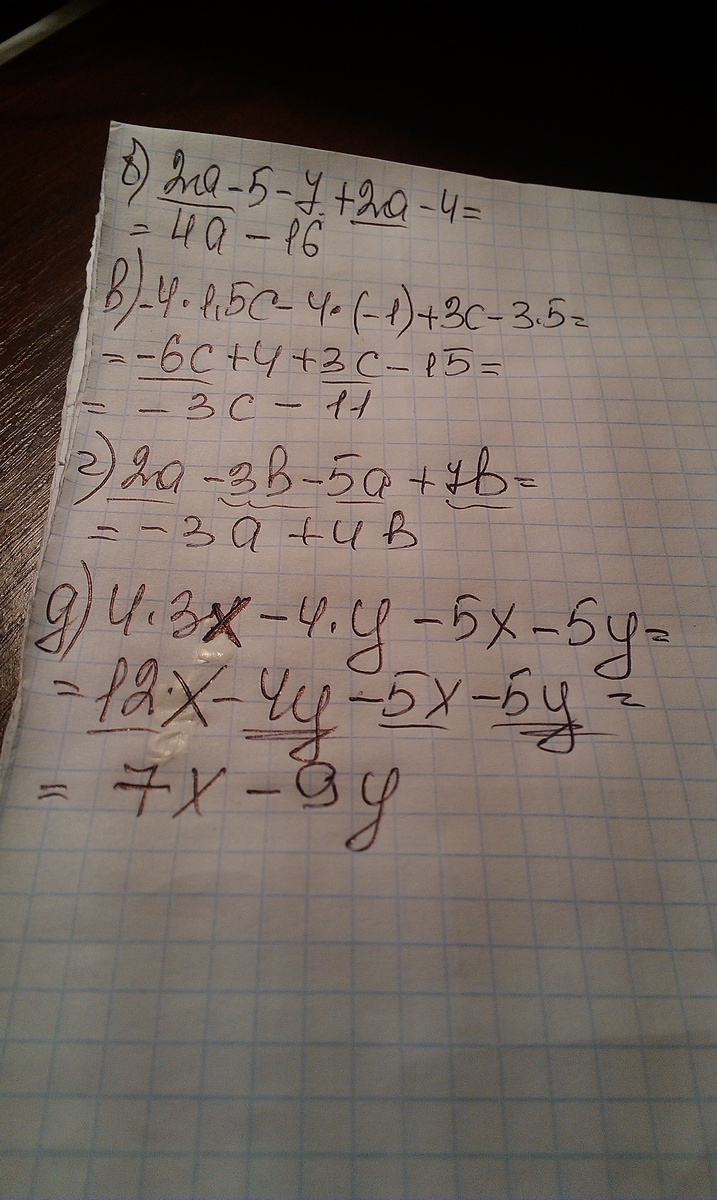 б) 2a - 5 - 7 + 2a - 4 =
= 4a - 16
в) -4·1,5c - 4·(-1) + 3c - 3·5 =
= -6c + 4 + 3c - 15 =
= - 3c - 11
г) 2a - 3b - 5a + 7b =
= - 3a + 4b
д) 4·3x - 4·y - 5x - 5y =
= 12·x - 4y - 5x - 5y =
= 7x - 9y